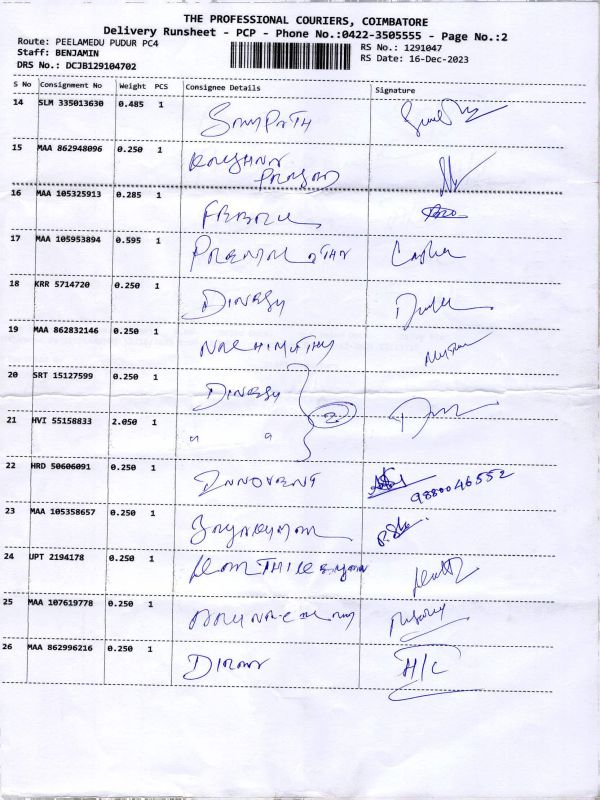 THE PROFESSIONAL COURIERS, COIMBATORE
Delivery Runsheet - PCP - Phone No.:0422-3505555 - Page No.:2
Route: PEELAMEDU PUDUR PC4
RS No.: 1291047
Staff: BENJAMIN
RS Date: 16-Dec-2023
DRS No.: DCJB129104702
S No Consignment No Weight PCS Consignee Details Signature
14 SLM 335013630 0.485 1 SAMPATH
15 MAA 862948096 0.250 1 KRISHNA
PRASAD
16 MAA 105325913 0.285 1
17 MAA 105953894 0.595 1
18 KRR 5714720 0.250 1 DINESH
19 MAA 862832146 0.250 1 NACHIMUTHU
20 SRT 15127599 0.250 1 DINESH 2
21 HVI 55158833 2.050 1 " "
22 HRD 50606091 0.250 1 INNOVENT 9880046552
23 MAA 105358657 0.250 1
24 UPT 2194178 0.250 1
25 MAA 107619778 0.250 1
26 MAA 862996216 0.250 1 H/C